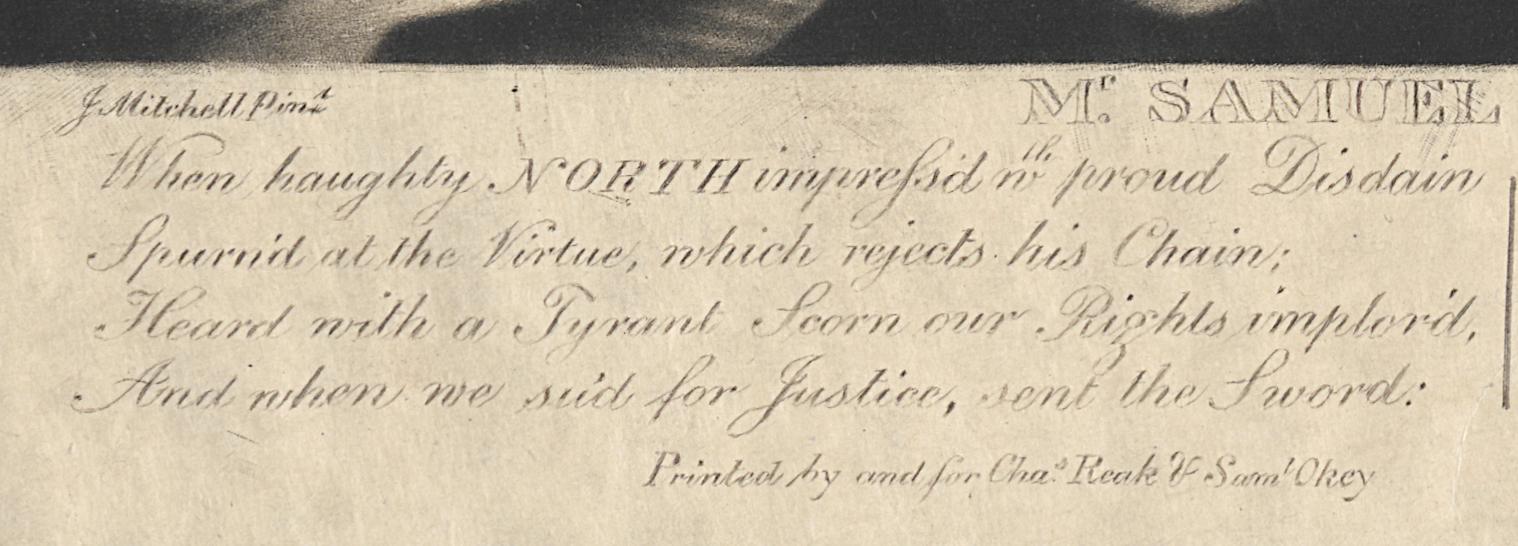 J Mitchell Pinx^t
M^r. SAMUEL
When haughty NORTH impreſs'd w^th proud Disdain
Spurn'd at the Virtue, which rejects his Chain;
Heard with a Tyrant Scorn our Rights implor'd,
And when we su'd for Justice, sent the Sword:
Printed by and for Cha^s Reak & Sam^l Okey